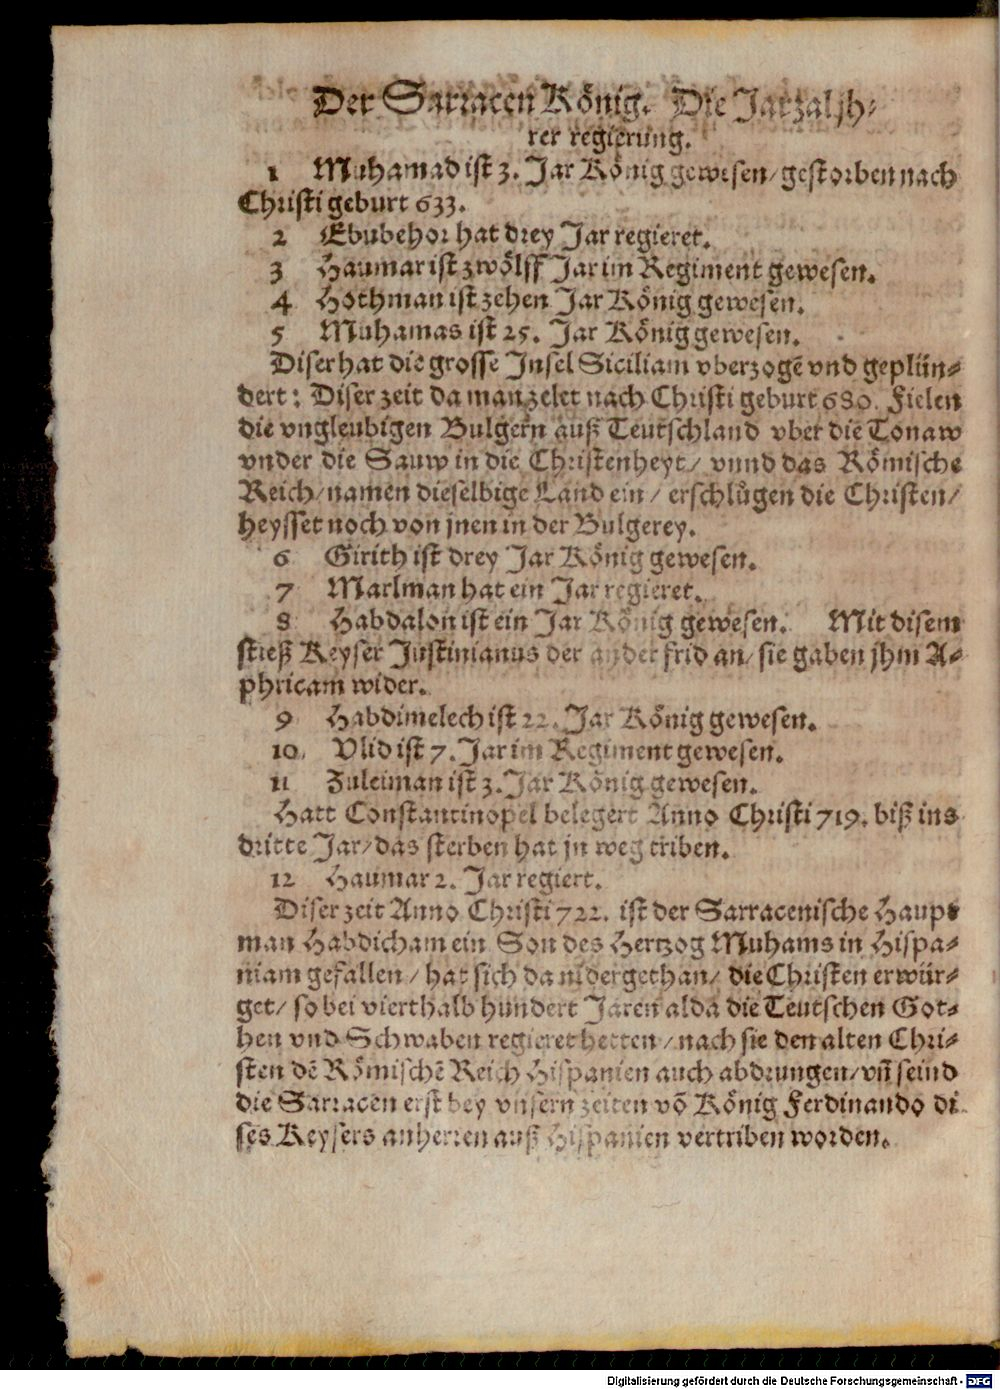 Der Sarracen König. Die Jarzal jh⸗
rer regierung.
1 Muhamad ist 3. Jar König gewesen/gestorben nach
Christi geburt 633.
2 Ebubehor hat drey Jar regieret.
3 Haumar ist zwölff Jar im Regiment gewesen.
4 Hothman ist zehen Jar König gewesen.
5 Muhamas ist 25. Jar König gewesen.
Diser hat die grosse Insel Siciliam vberzogẽ vnd geplün⸗
dert: Diser zeit da man zelet nach Christi geburt 680. Fielen
die vngleubigen Bulgern auß Teutschland vber die Tonaw
vnder die Sauw in die Christenheyt/ vnnd das Römische
Reich/namen dieselbige Land ein/ erschlůgen die Christen/
heysset noch von jnen in der Bulgerey.
6 Girith ist drey Jar König gewesen.
7 Marlman hat ein Jar regieret.
8 Habdalon ist ein Jar König gewesen. Mit disem
stieß Keyser Justinianus der ander frid an/ sie gaben jhm A⸗
phricam wider.
9 Habdimelech ist 22. Jar König gewesen.
10 Vlid ist 7. Jar im Regiment gewesen.
11 Zuleiman ist 3. Jar König gewesen.
Hatt Constantinopel belegert Anno Christi 719. biß ins
dritte Jar/das sterben hat jn weg triben.
12 Haumar 2. Jar regiert.
Diser zeit Anno Christi 722. ist der Sarracenische Haupt
man Habdicham ein Son des Hertzog Muhams in Hispa⸗
niam gefallen/ hat sich da nidergethan/ die Christen erwür⸗
get/ so bei vierthalb hundert Jaren alda die Teutschen Got⸗
hen vnd Schwaben regieret hetten/nach sie den alten Chri⸗
sten dẽ Römischẽ Reich Hispanien auch abdrungen/vñ seind
die Sarracen erst bey vnsern zeiten võ König Ferdinando di
ses Keysers anherren auß Hispanien vertriben worden.
Digitalisierung gefördert durch die Deutsche Forschungsgemeinschaft - DFG